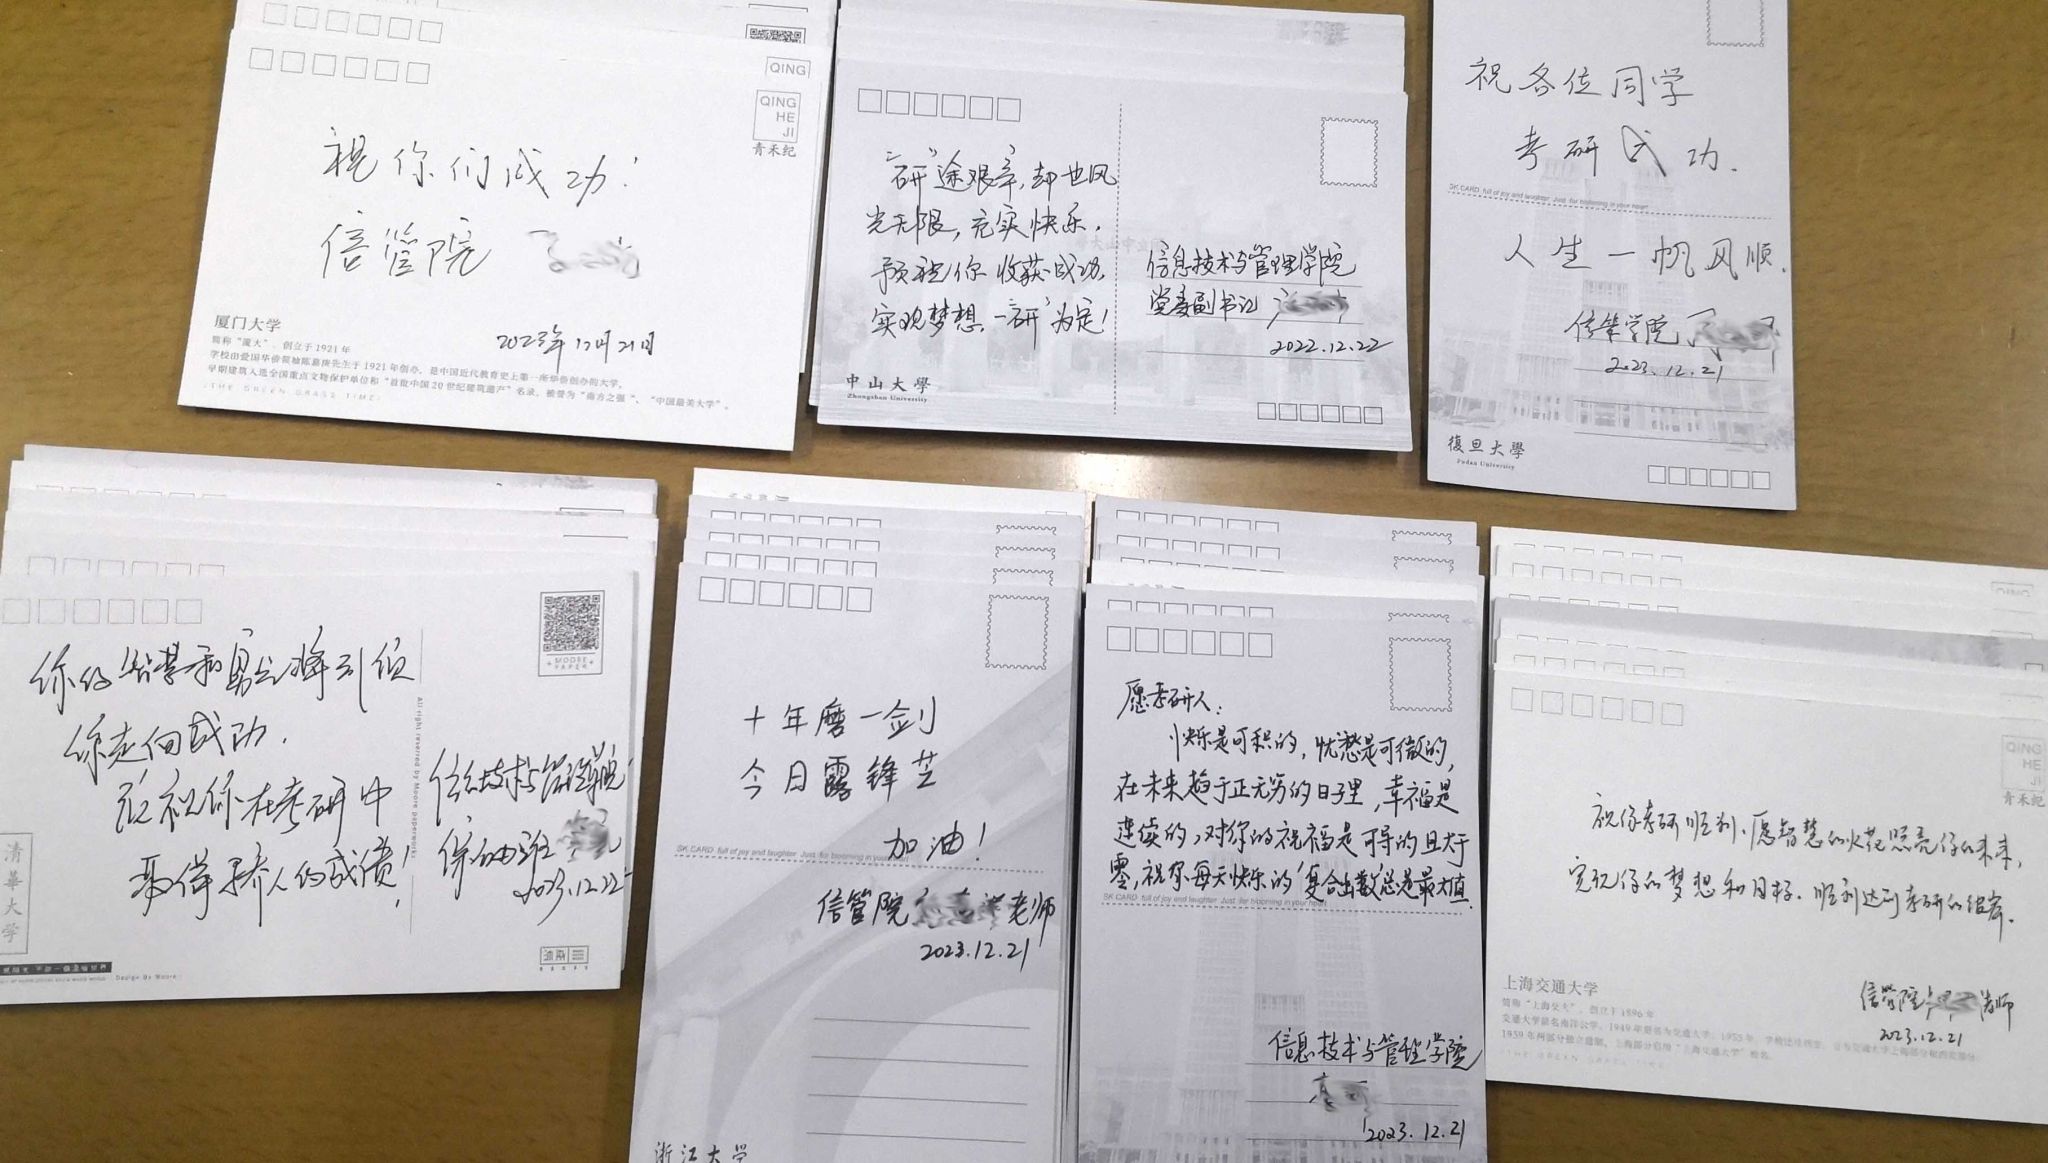 QING
QING
HE
JI
青禾纪
祝你们成功!
信管院
2023年12月21日
厦门大学
简称“厦大”,创立于1921年
学校由爱国华侨领袖陈嘉庚先生于1921年创办,是中国近代教育史上第一所华侨创办的大学,
早期建筑入选全国重点文物保护单位和“首批中国20世纪建筑遗产”名录,被誉为“南方之强”、“中国最美大学”。
(THE GREEN GRASS TIME)
“研”途艰辛,却也风
光无限,充实快乐,
预祝你收获成功,
实现梦想,一“研”为定!
信息技术与管理学院
党委副书记
2022.12.22
中山大學
Zhongshan University
祝各位同学
考研成功.
SK CARD full of joy and laughter Just for blooming in your heart
人生一帆风顺.
信管学院
2023.12.21
復旦大學
Fudan University
你的智慧和勇气将引领
你走向成功.
预祝你在考研中
取得骄人的成绩!
MOORE
PAPER
All rights reserved by Moore paperworks
信息技术与管理学院
2023.12.22
清華大学
Design By Moore
十年磨一剑
今日露锋芒
加油!
SK CARD full of joy and laughter Just for blooming in your heart
信管院 老师
2023.12.21
浙江大学
愿考研人:
快乐是可积的,忧愁是可微的,
在未来趋于正无穷的日子里,幸福是
连续的,对你的祝福是可导的且大于
零,祝你每天快乐的复合函数总是最大值.
SK CARD full of joy and laughter Just for blooming in your heart
信息技术与管理学院
2023.12.21
QING
HE
JI
青禾纪
祝你考研顺利,愿智慧的火花照亮你的未来,
实现你的梦想和目标.顺利达到考研的彼岸.
上海交通大学
简称“上海交大”,创立于1896年
信管院 老师
2023.12.21
(THE GREEN GRASS TIME)